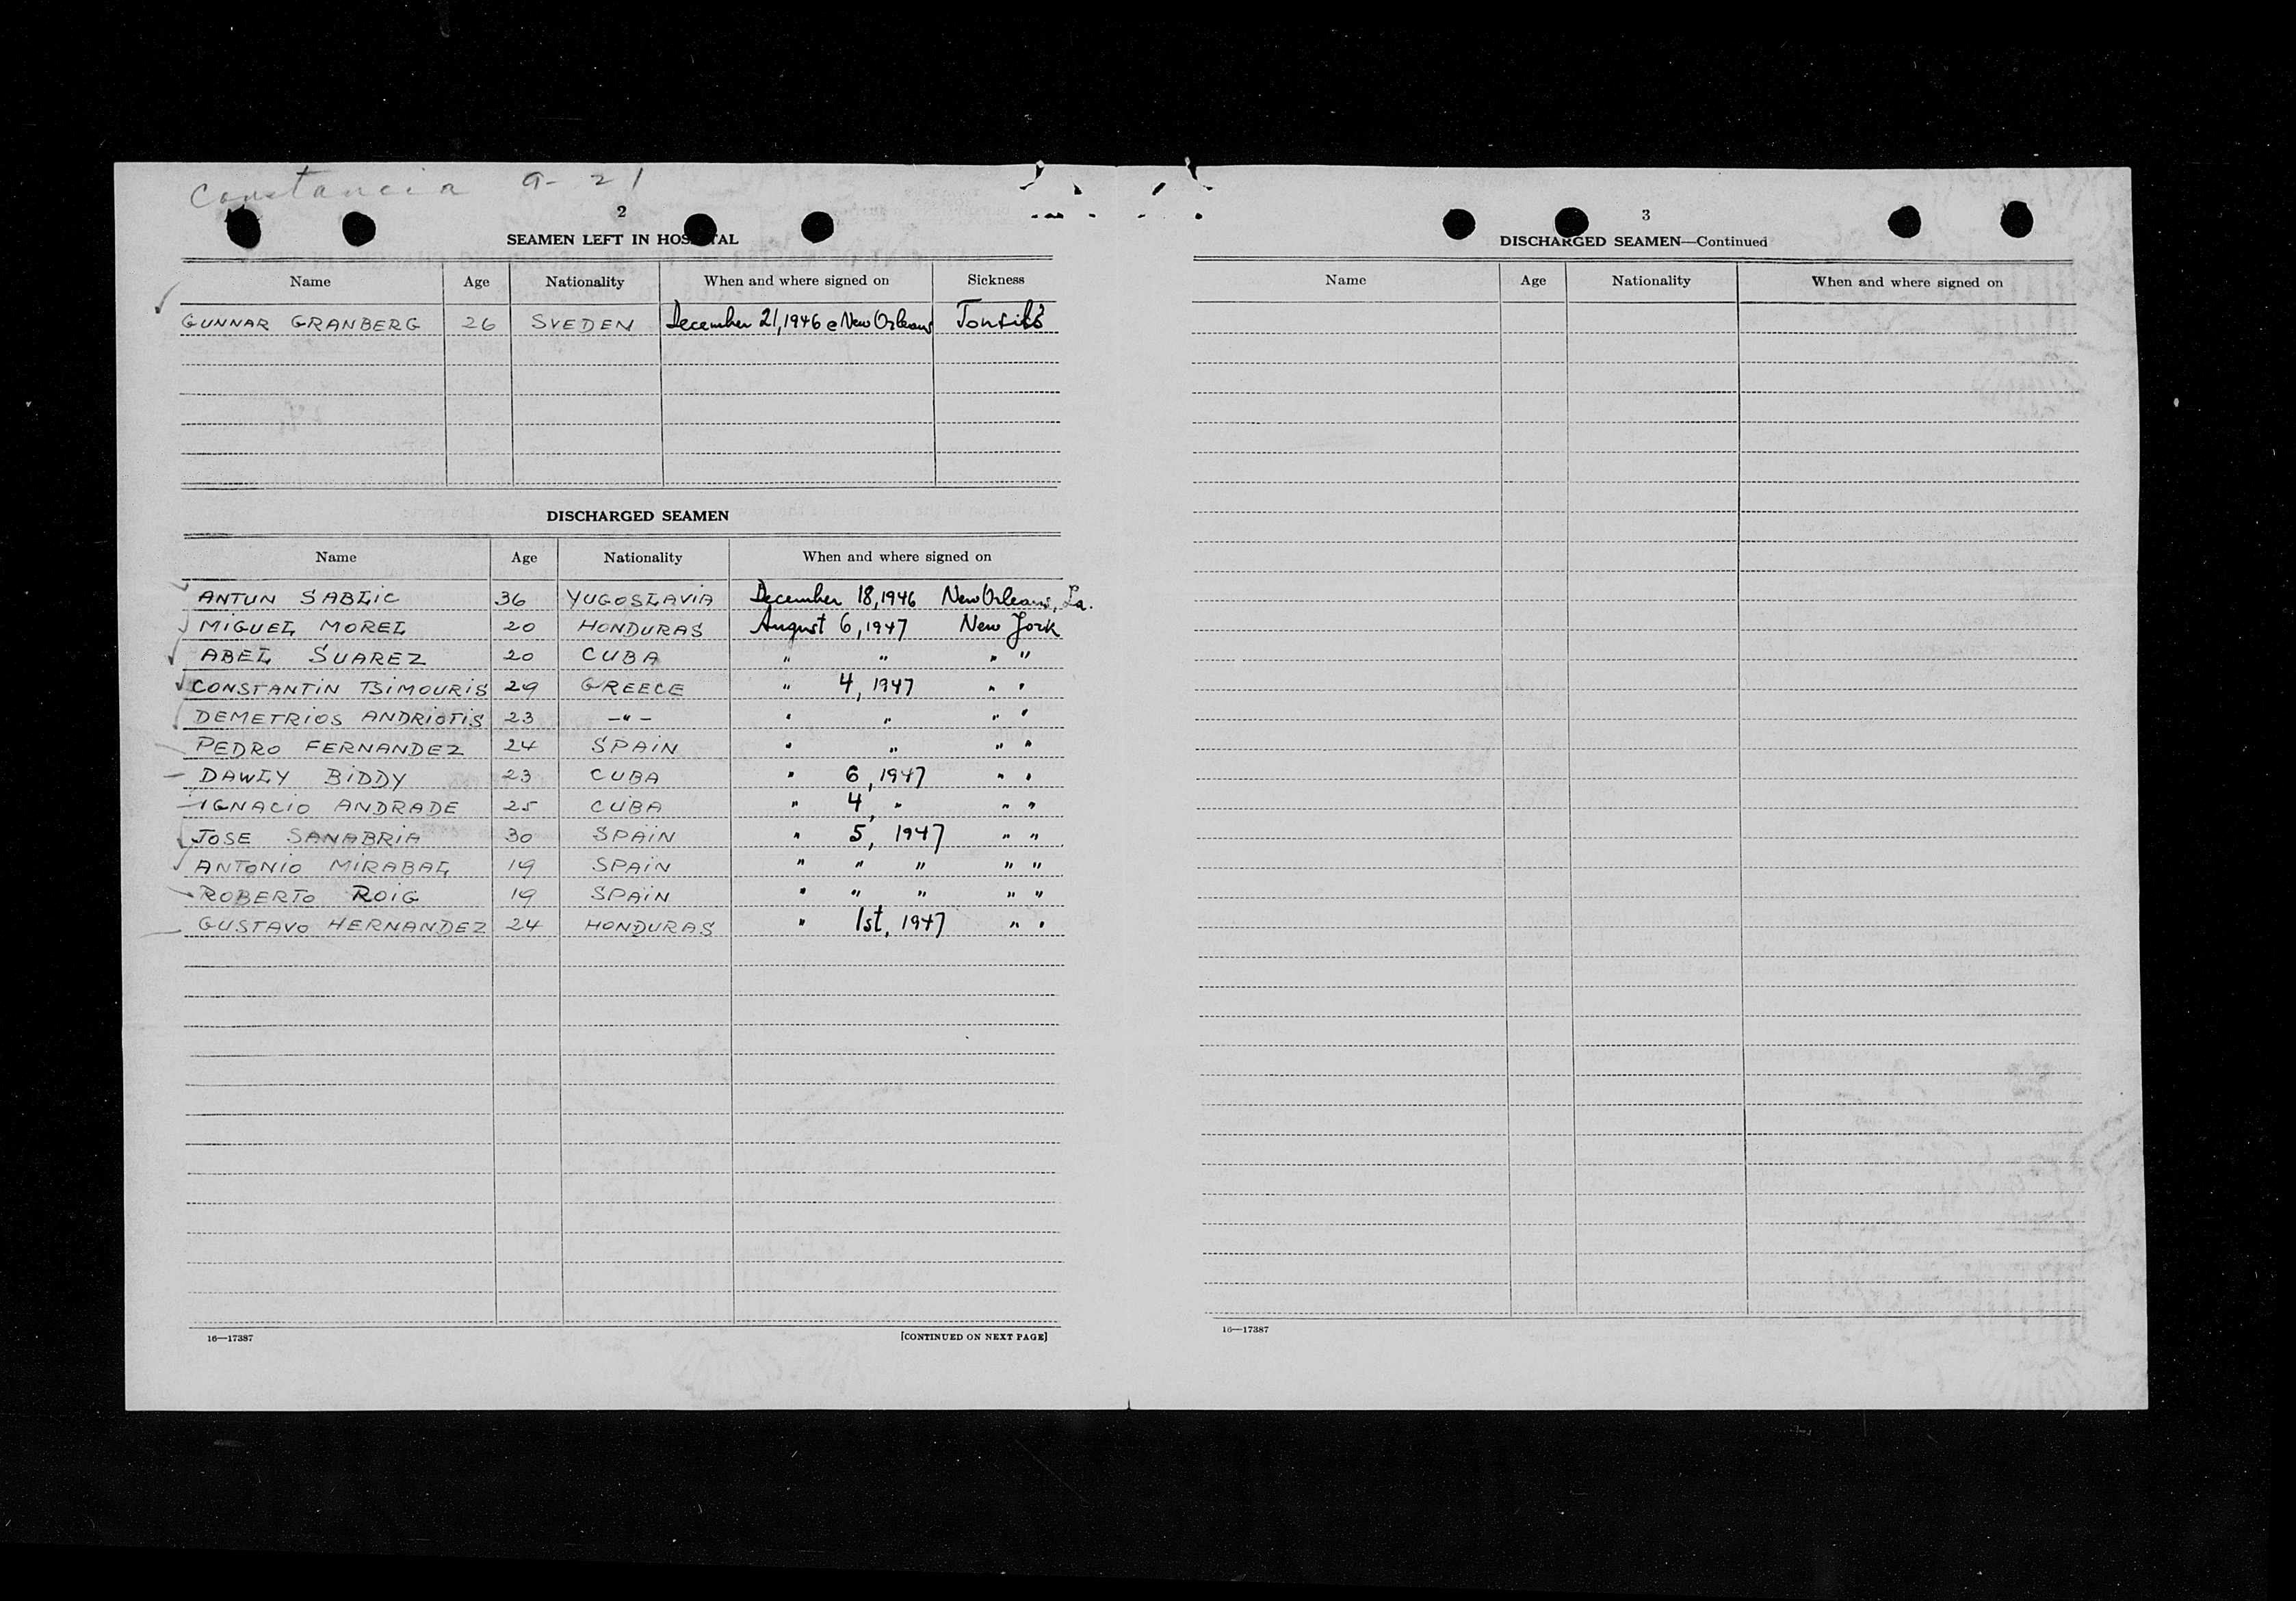 Constancia 9-21
2
SEAMEN LEFT IN HOSPITAL
Name Age Nationality When and where signed on Sickness
GUNNAR GRANBERG 26 SVEDEN December 21, 1946 e New Orleans Tonsils
DISCHARGED SEAMEN
Name Age Nationality When and where signed on
ANTUN SABLIC 36 YUGOSLAVIA December 18, 1946 New Orleans, La.
MIGUEL MOREL 20 HONDURAS August 6, 1947 New York
ABEL SUAREZ 20 CUBA " " " "
CONSTANTIN TSIMOURIS 29 GREECE " 4, 1947 " "
DEMETRIOS ANDRIOTIS 23 -"- " " " "
PEDRO FERNANDEZ 24 SPAIN " " " "
DAWLY BIDDY 23 CUBA " 6, 1947 " "
IGNACIO ANDRADE 25 CUBA " 4, " " "
JOSE SANABRIA 30 SPAIN " 5, 1947 " "
ANTONIO MIRABAL 19 SPAIN " " " " "
ROBERTO ROIG 19 SPAIN " " " " "
GUSTAVO HERNANDEZ 24 HONDURAS " 1st, 1947 " "
16—17387 [CONTINUED ON NEXT PAGE]
3
DISCHARGED SEAMEN—Continued
Name Age Nationality When and where signed on
16—17387